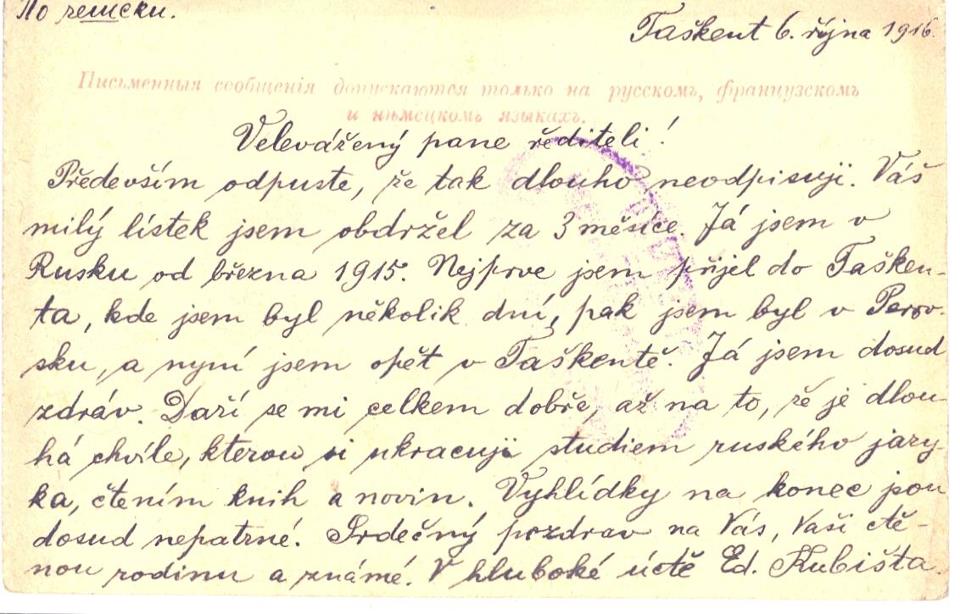 По чешски.
Taškent 6. října 1916.
Письменныя сообщенія допускаются только на русскомъ, французскомъ
и нѣмецкомъ языкахъ.
Velevážený pane řediteli!
Především odpuste, že tak dlouho neodpisuji. Váš
milý lístek jsem obdržel za 3 měsíce. Já jsem v
Rusku od března 1915. Nejprve jsem přijel do Tašken-
ta, kde jsem byl několik dní, pak jsem byl v Perov-
sku, a nyní jsem opět v Taškentě. Já jsem dosud
zdráv. Daří se mi celkem dobře, až na to, že je dlou-
há chvíle, kterou si ukracuji studiem ruského jazy-
ka, čtením knih a novin. Vyhlídky na konec jsou
dosud nepatrné. Srdečný pozdrav na Vás, Vaši ctě-
nou rodinu a známé. V hluboké úctě Ed. Kubišta.